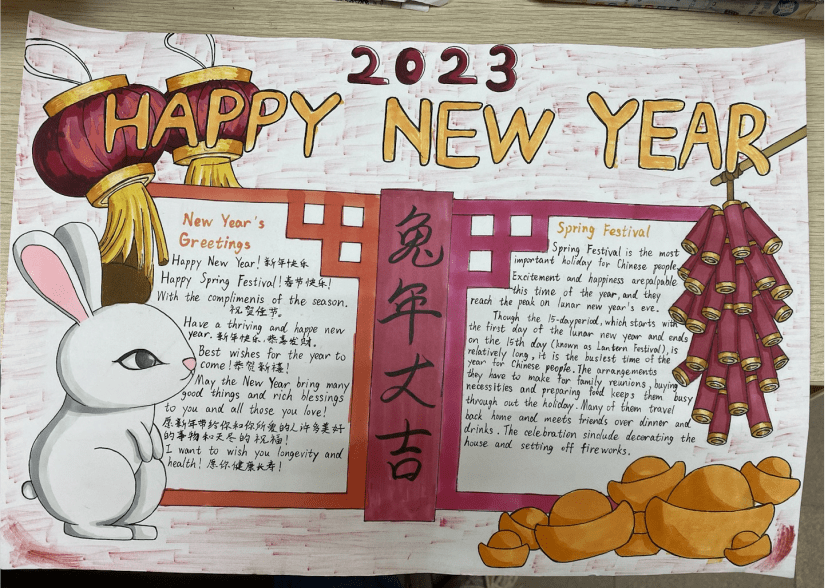 2023
HAPPY NEW YEAR
New Year's
Greetings
Happy New Year! 新年快乐
Happy Spring Festival! 春节快乐!
With the complimenis of the season.
祝贺佳节。
Have a thriving and happe new
year. 新年快乐.恭喜发财.
Best wishes for the year to
come! 恭贺新禧!
May the New Year bring many
good things and rich blessings
to you and all those you love!
愿新年带给你和你所爱的人许多美好
的事物和天冬的祝福!
I want to wish you longevity and
health! 愿你健康长寿!
兔年丈吉
Spring Festival
Spring Festival is the most
important holiday for Chinese people
Excitement and happiness arepalpable
this time of the year, and they
reach the peak on lunar new year's eve.
Though the 15-dayperiod, which starts with
the first day of the lunar new year and ends
on the 15th day (known as Lantern Festival), is
relatively long, it is the busiest time of the
year for Chinese people. The arrangements
they have to make for family reunions, buying
necessities and preparing food keeps them busy
through out the holiday. Many of them travel
back home and meets friends over dinner and
drinks. The celebration sinclude decorating the
house and setting off fireworks.